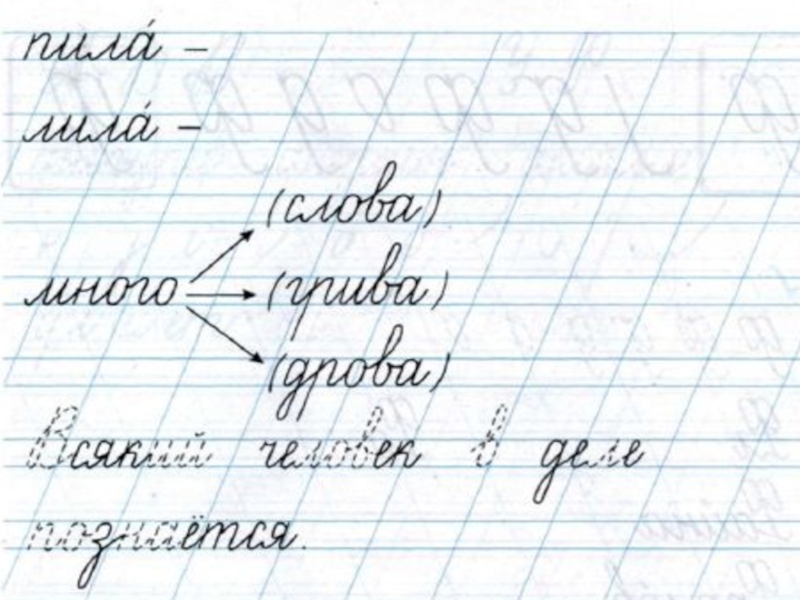 пила́ –
лила́ –
(слова)
много (грива)
(дрова)
Всякий человек в деле
познаётся.